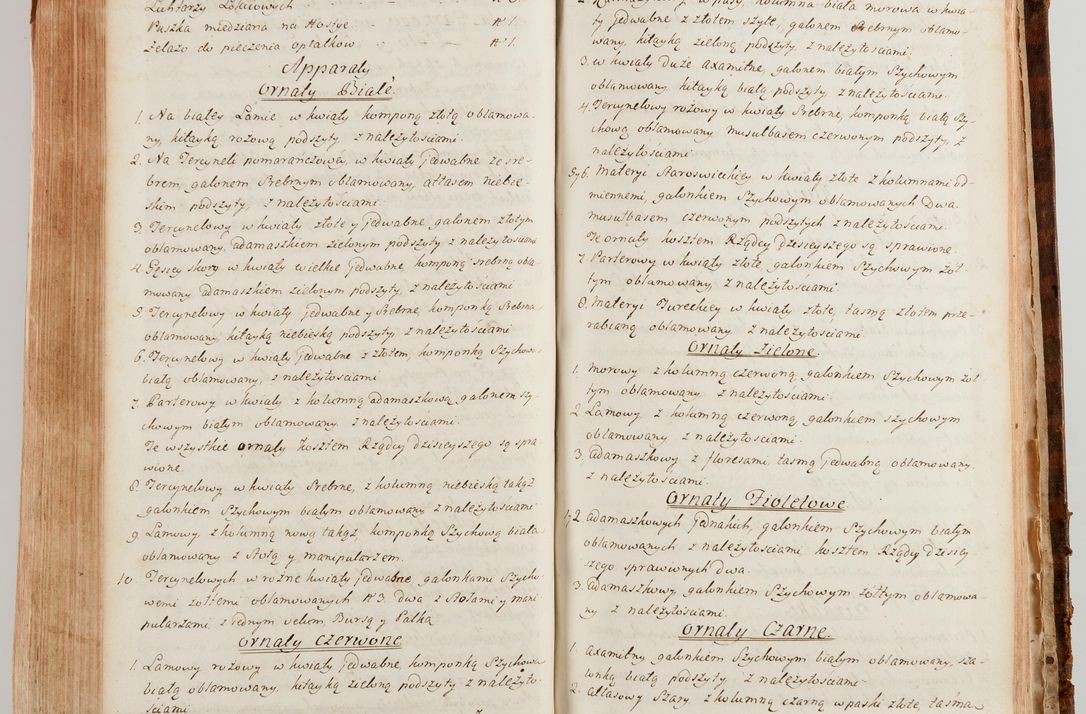 Lichtarzy Łokciowych
Puszka miedziana na Hostye # 1.
Zelazo do pieczenia opłatkow # 1.
Apparaty
Ornaty Białe.
1. Na białey Lamie w kwiaty komponą złotą oblamowa-
ny, kitayką rożową podszyty, z należytościami.
2. Na Tercyneli pomarańczowey, w kwiaty jedwabne ze sre-
brem, galonem Srebrnym oblamowany, atłasem niebie-
skim podszyty, z należytościami.
3. Tercynelowy w kwiaty złote y jedwabne galonem złotym
oblamowany, adamaszkiem zielonym podszyty z należytościami
4. Gęsiey skory w kwiaty wielkie jedwabne, komponą srebrną obla-
mowany adamaszkiem zielonym podszyty, z należytościami
5. Tercynelowy w kwiaty jedwabne y Srebrne, komponką Srebrną
oblamowany, kitayką niebieską podszyty, z należytościami
6. Tercynelowy w kwiaty jedwabne z złotem, komponką Szychową
białą oblamowany, z należytościami
7. Parterowy w kwiaty z kolumną adamaszkową galonem szy-
chowym białym oblamowany z należytościami.
Te wszystkie ornaty kosztem Rządcy dzisieyszego są spra-
wione
8. Tercynelowy w kwiaty Srebrne, z kolumną niebieską takąż
galonkiem Szychowym białym oblamowany z należytościami
9. Lamowy z kolumną nową takąż, komponką Szychową białą
oblamowany z Stołą y manipularzem.
10. Tercynelowych w rożne kwiaty jedwabne galonkami Szycho-
wemi żołtemi oblamowanych # 3. dwa z Stołami y mani
pularzami z jednym velum, Bursą y Palką
Ornaty Czerwone
1. Lamowy rożowy w kwiaty jedwabne, komponką Szychową
białą oblamowany, kitayką zieloną podszyty z należyto-
ściami
w pasy, kolumna biała morowa w kwia-
ty jedwabne z złotem szyte, galonem Srebrnym oblamo-
wany, kitayką zieloną podszyty, z należytościami.
3. w kwiaty duże axamitne, galonem białym Szychowym
oblamowany, kitayką białą podszyty, z należytościami.
4. Tercynelowy rożowy w kwiaty Srebrne, komponką białą Szy-
chową oblamowany musułbasem czerwonym podszyty, z
należytościami
5 y 6. Materyi Staroswieckiey w kwiaty złote z kolumnami od-
miennemi, galonkiem Szychowym oblamowanych Dwa.
musułbasem czerwonym podszytych z należytościami.
Te ornaty kosztem Rządcy dzisieyszego są sprawione.
7. Parterowy w kwiaty złote, galonkiem Szychowym żoł-
tym oblamowany, z należytościami
8. Materyi Tureckiey w kwiaty złote, tasmą złotem prze-
rabianą oblamowany z należytościami.
Ornaty Zielone.
1. Morowy z kolumną czerwoną, galonkiem Szychowym żoł-
tym oblamowany z należytościami.
2. Lamowy, z kolumną czerwoną, galonkiem szychowym
oblamowany z należytościami.
3. Adamaszkowy z floresami, tasmą jedwabną oblamowany.
z należytościami.
Ornaty Fioletowe.
1 y 2. Adamaszkowych jednakich, galonkiem Szychowym białym
oblamowanych z należytościami kosztem Rządcy dzisiey-
szego sprawionych Dwa.
3. Adamaszkowy galonkiem Szychowym żołtym oblamowa-
ny z należytościami.
Ornaty Czarne.
1. Axamitny galonkiem Szychowym białym oblamowany, sza-
tonką białą podszyty z należytościami
2. Atłasowy Szary z kolumną czarną w paski złote, tasma